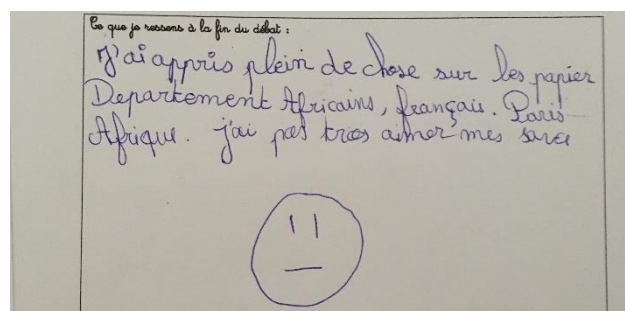 Ce que je ressens à la fin du débat :
J'ai appris plein de chose sur les papier
Departement Africains, français. Paris
Afrique. j'ai pas tros aimer mes